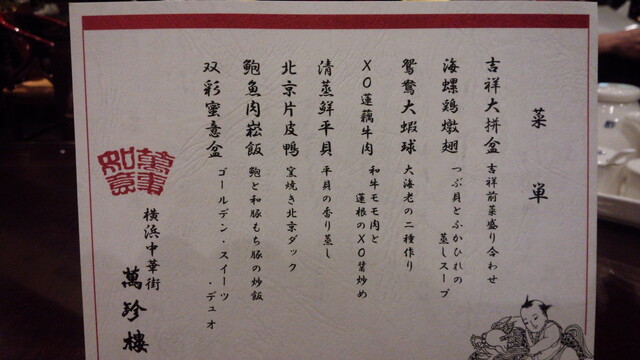 菜単
吉祥大拼盆 吉祥前菜盛り合わせ
海螺鶏燉翅 つぶ貝とふかひれの
蒸しスープ
鴛鴦大蝦球 大海老の二種作り
XO蓮藕牛肉 和牛モモ肉と
蓮根のXO醤炒め
清蒸鮮平貝 平貝の香り蒸し
北京片皮鴨 窯焼き北京ダック
鮑魚肉崧飯 鮑と和豚もち豚の炒飯
双彩蜜意盆 ゴールデン・スイーツ・デュオ
萬事如意
横浜中華街
萬珍樓